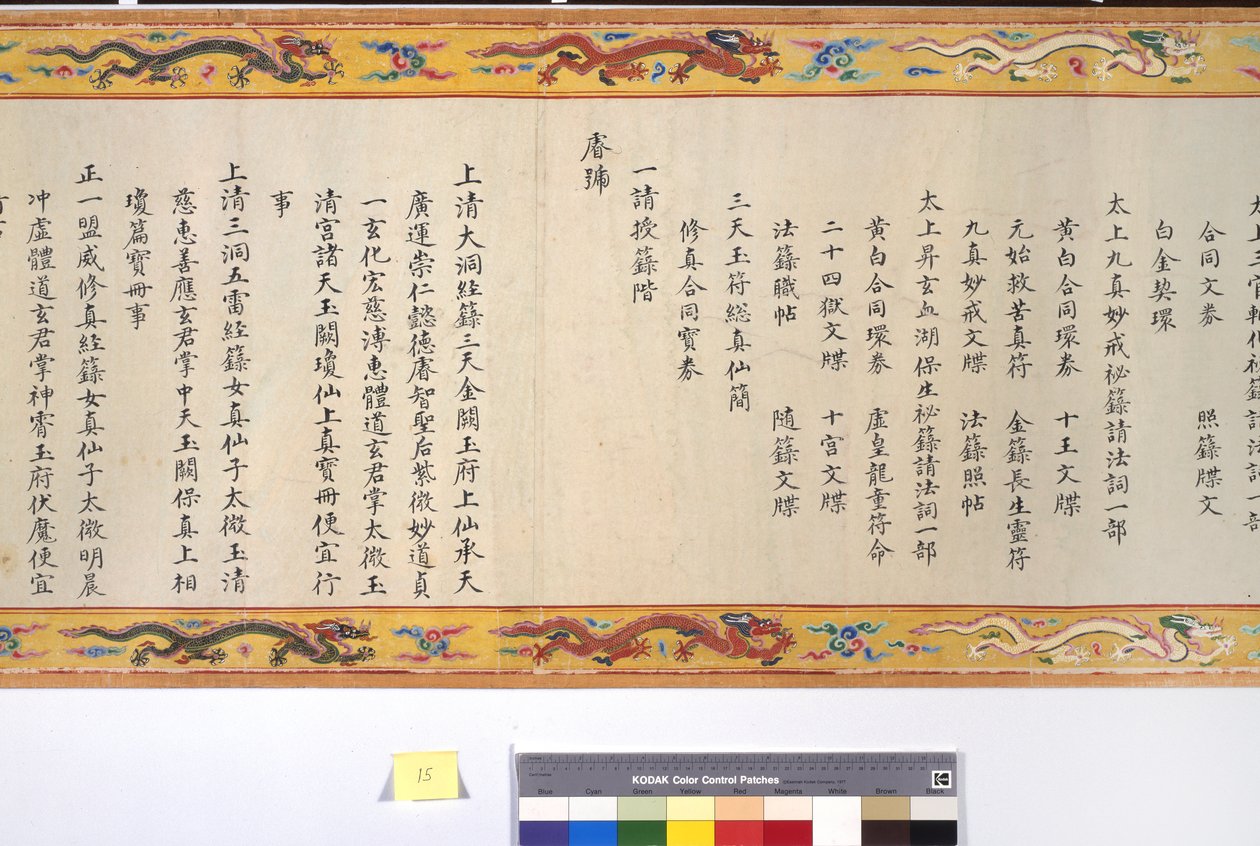 合同文券 照籙牒文
白金契環
太上九真妙戒祕籙請法詞一部
黄白合同環券 十王文牒
元始救苦真符 金籙長生靈符
九真妙戒文牒 法籙照帖
太上昇玄血湖保生祕籙請法詞一部
黄白合同環券 虛皇龍童符命
二十四獄文牒 十宮文牒
法籙職帖 随籙文牒
三天玉符総真仙簡
修真合同寶券
一請授籙階
睿號
上清大洞経籙三天金闕玉府上仙承天
廣運崇仁懿德睿智聖后紫微妙道貞
一玄化宏慈溥惠體道玄君掌太微玉
清宮諸天玉闕瓊仙上真寶冊便宜行
事
上清三洞五雷経籙女真仙子太微玉清
慈惠善應玄君掌中天玉闕保真上相
瓊篇寶冊事
正一盟威修真経籙女真仙子太微明晨
冲虛體道玄君掌神霄玉府伏魔便宜
15
KODAK Color Control Patches
Blue Cyan Green Yellow Red Magenta White Brown Black